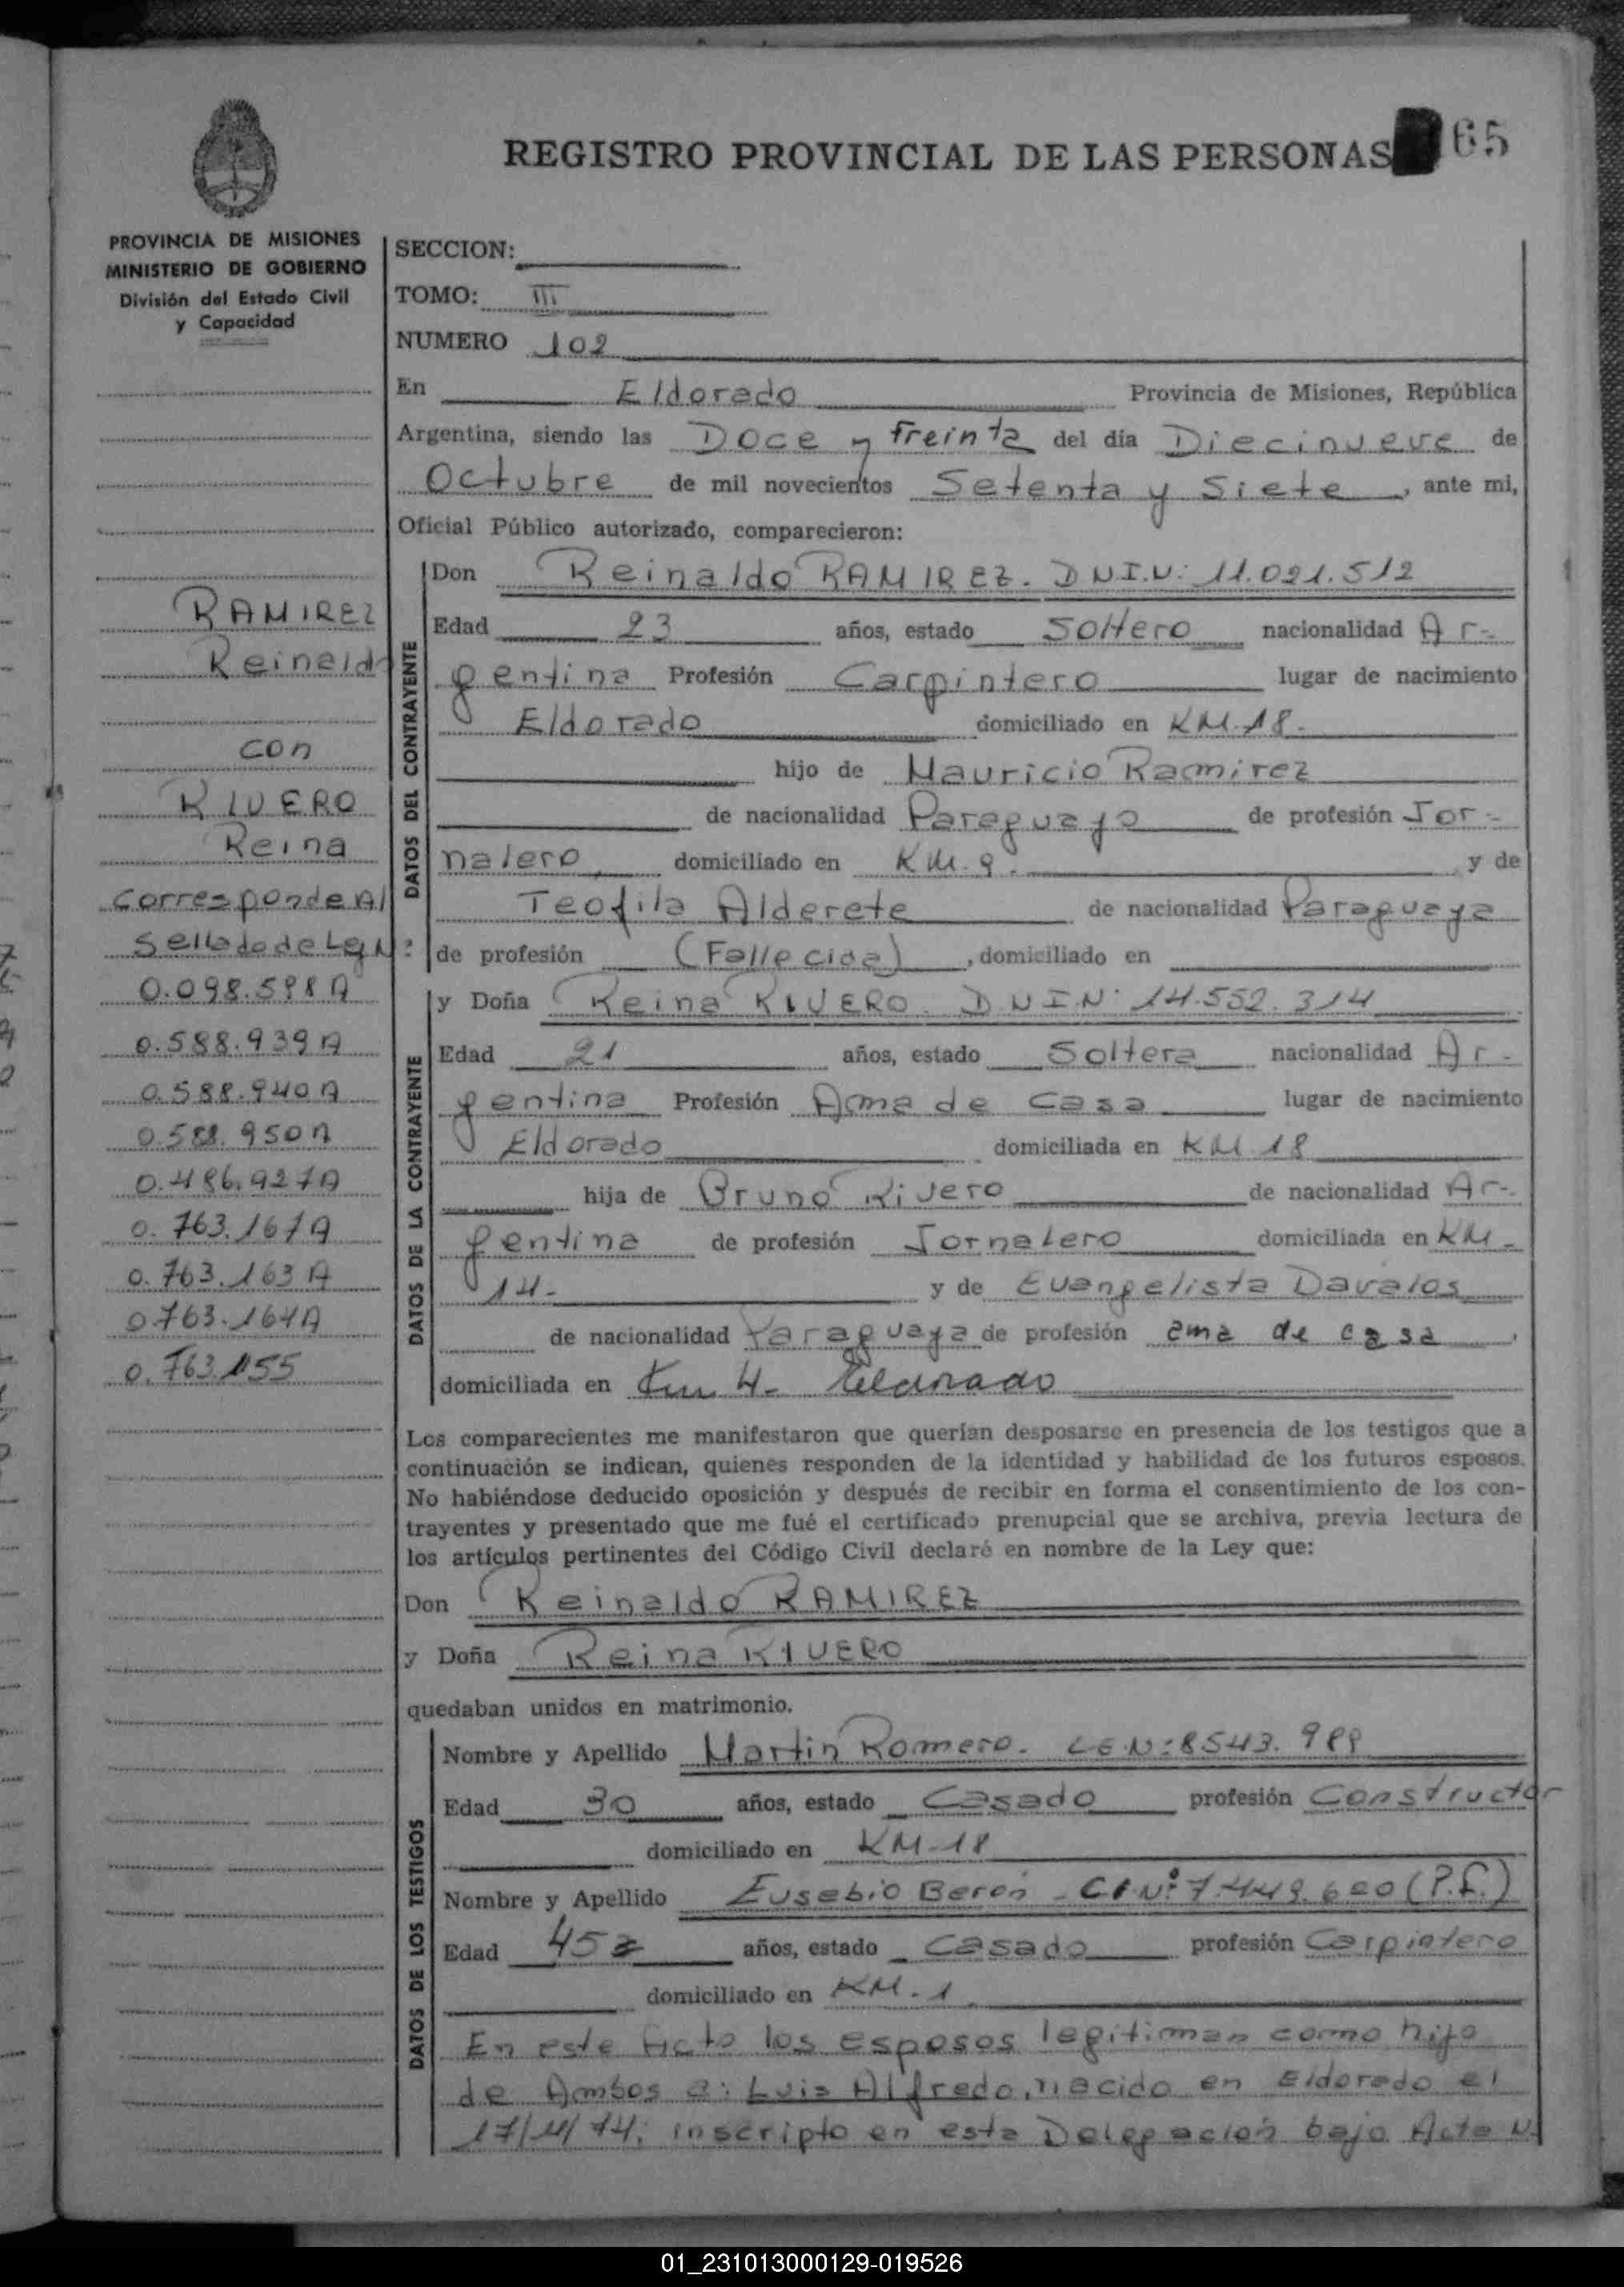 REGISTRO PROVINCIAL DE LAS PERSONAS 65
PROVINCIA DE MISIONES
MINISTERIO DE GOBIERNO
División del Estado Civil
y Capacidad
RAMIREZ
Reinaldo
con
RIVERO
Reina
Corresponde Al
Sellado de Ley N:
0.098.598A
0.588.939A
0.588.940A
0.588.950A
0.486.927A
0.763.161A
0.763.163A
0.763.164A
0.763.155
SECCION:
TOMO: III
NUMERO 102
En Eldorado Provincia de Misiones, República
Argentina, siendo las Doce y treinta del día Diecinueve de
Octubre de mil novecientos Setenta y Siete, ante mi,
Oficial Público autorizado, comparecieron:
DATOS DEL CONTRAYENTE
Don Reinaldo RAMIREZ. DNI.N: 11.021.512
Edad 23 años, estado Soltero nacionalidad Ar-
gentina Profesión Carpintero lugar de nacimiento
Eldorado domiciliado en KM.18.
hijo de Mauricio Ramirez
de nacionalidad Paraguayo de profesión Jor-
nalero, domiciliado en KM.9. y de
Teofila Alderete de nacionalidad Paraguaya
de profesión (Fallecida), domiciliado en
DATOS DE LA CONTRAYENTE
y Doña Reina RIVERO. DNIN: 14.552.314
Edad 21 años, estado Soltera nacionalidad Ar-
gentina Profesión Ama de casa lugar de nacimiento
Eldorado domiciliada en KM 18
hija de Bruno Rivero de nacionalidad Ar-
gentina de profesión Jornalero domiciliada en KM-
14- y de Evangelista Davalos
de nacionalidad Paraguaya de profesión ama de casa,
domiciliada en Km 4- Eldorado
Los comparecientes me manifestaron que querían desposarse en presencia de los testigos que a
continuación se indican, quienes responden de la identidad y habilidad de los futuros esposos.
No habiéndose deducido oposición y después de recibir en forma el consentimiento de los con-
trayentes y presentado que me fué el certificado prenupcial que se archiva, previa lectura de
los artículos pertinentes del Código Civil declaré en nombre de la Ley que:
Don Reinaldo RAMIREZ
y Doña Reina RIVERO
quedaban unidos en matrimonio.
DATOS DE LOS TESTIGOS
Nombre y Apellido Martin Romero. LEN:8543.989
Edad 30 años, estado Casado profesión Constructor
domiciliado en KM-18
Nombre y Apellido Eusebio Berón - CI Nº 7.449.600 (P.F.)
Edad 45 años, estado Casado profesión Carpintero
domiciliado en KM.1
En este Acto los esposos legitiman como hijo
de Ambos a: Luis Alfredo, nacido en Eldorado el
17/11/74, inscripto en esta Delegación bajo Acta N.
01_231013000129-019526